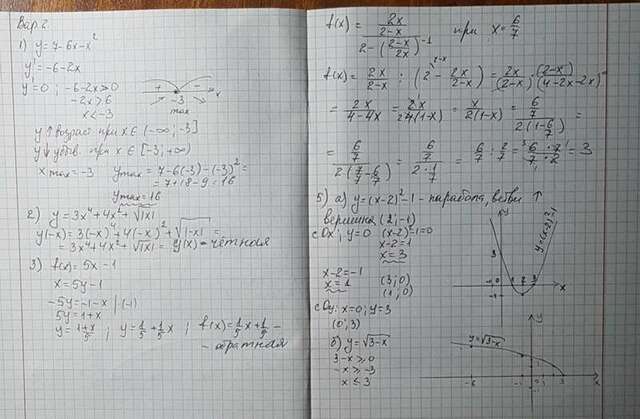 Вар. 2
1) y = 7-6x-x²
y' = -6-2x
y' = 0 ; -6-2x ≥ 0
-2x ≥ 6
x < -3
+ -3 - x
max
y ↑ возраст при x ∈ (-∞; -3]
y ↓ убыв. при x ∈ [-3; +∞)
x max = -3 ymax = 7-6(-3)-(-3)² =
= 7+18-9 = 16
ymax = 16
2) y = 3x⁴+4x²+√|x|
y(-x) = 3(-x)⁴+4(-x)²+√|-x| =
= 3x⁴+4x²+√|x| = y(x) - чётная
3) f(x) = 5x-1
x = 5y-1
-5y = -1-x | (-1)
5y = 1+x
y = 1+x/5 ; y = 1/5 + 1/5 x ; f(x) = 1/5 x + 1/5 -
- обратная
f(x) = 2x/2-x / 2-(2-x/2x)⁻¹ при x = 6/7
f(x) = 2x/2-x : (2 - 2x/2-x) = 2x/(2-x) · (2-x)/(4-2x-2x) =
= 2x/4-4x = 2x/4(1-x) = x/2(1-x) = 6/7 / 2(1-6/7) =
= 6/7 / 2(7/7-6/7) = 6/7 / 2·1/7 = 6/7 : 2/7 = 6·7/7·2 = 3
5) а) y = (x-2)²-1 - парабола, ветви ↑
вершина (2; -1)
с Ox: y=0 (x-2)²-1=0
x-2=1
x = 3
x-2 = -1
x = 1
(3; 0)
(1; 0)
с Oy: x=0; y=3
(0; 3)
y
3
y=(x-2)²-1
1 2 3 x
-1
б) y = √3-x
3-x ≥ 0
-x ≥ -3
x ≤ 3
y
y=√3-x
-6 -1 1 3 x